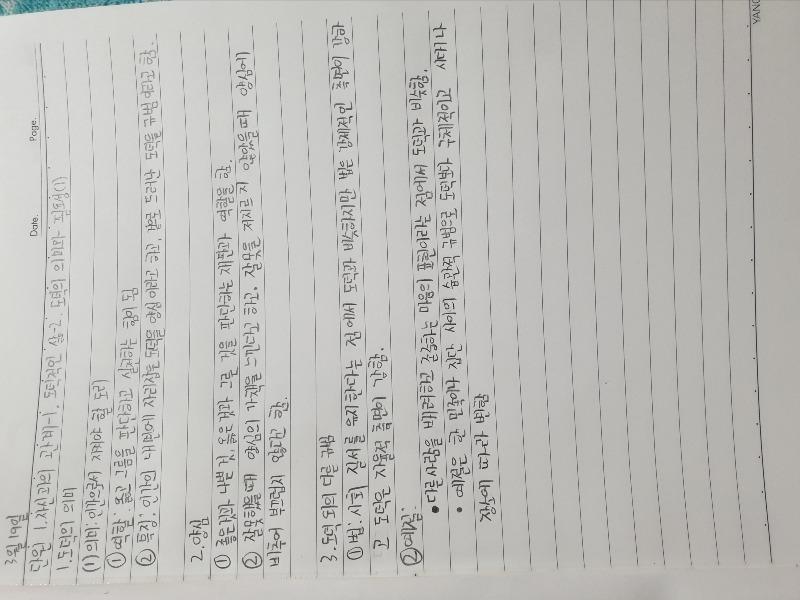 Date. Page.
3월19일
단원 1. 자신과의 관계-1. 도덕적인 삶-2. 도덕의 의미가 무엇일까(1)
1. 도덕의 의미
(1)의미:인간으로서 지켜야 할 도리
① 역할: 옳고 그름을 판단하고 실천하는 규범이 됨
② 특징: 인간의 내면에 자리잡은 도덕을 양심이라고 하고, 겉으로 드러난 도덕을 규범이라고 함
2. 양심
① 옳은것과 나쁜것, 옳음과 그른 것을 판단하는 재판과 역할을 함.
② 잘못했을 때 양심의 가책을 느끼다고 하고, 잘못을 저지르지 않았을때 양심에
비추어 부끄럽지 않다고 함.
3. 도덕 외의 다른 규범
① 법: 사회 질서를 유지한다는 점에서 도덕과 비슷하지만 법은 강제적인 측면이 강하
고 도덕은 자율적 측면이 강함.
② 예절:
• 다른사람을 배려하고 존중하는 마음의 표현이라는 점에서 도덕과 비슷함.
• 예절은 한 민족이나 집단 사이의 관습적 규범으로 도덕보다 구체적이고 시대나
지역에 따라 변함
YANG